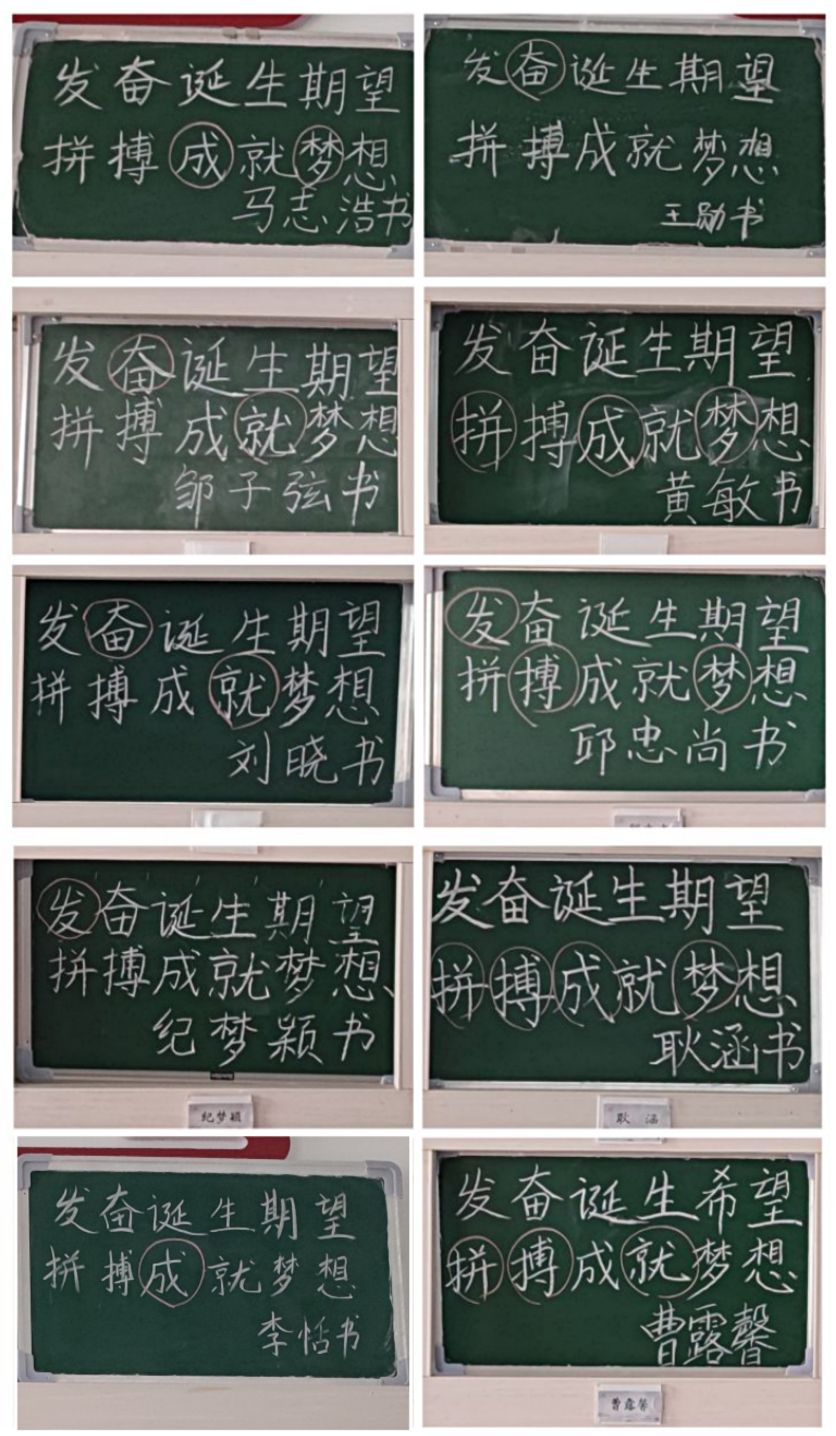 发奋诞生期望
拼搏成就梦想
马志浩书
发奋诞生期望
拼搏成就梦想
王勋书
发奋诞生期望
拼搏成就梦想
邹子弦书
发奋诞生期望
拼搏成就梦想
黄敏书
发奋诞生期望
拼搏成就梦想
刘晓书
发奋诞生期望
拼搏成就梦想
邱忠尚书
发奋诞生期望
拼搏成就梦想
纪梦颖书
纪梦颖
发奋诞生期望
拼搏成就梦想
耿涵书
耿 涵
发奋诞生期望
拼搏成就梦想
李恬书
发奋诞生希望
拼搏成就梦想
曹露馨
曹露馨